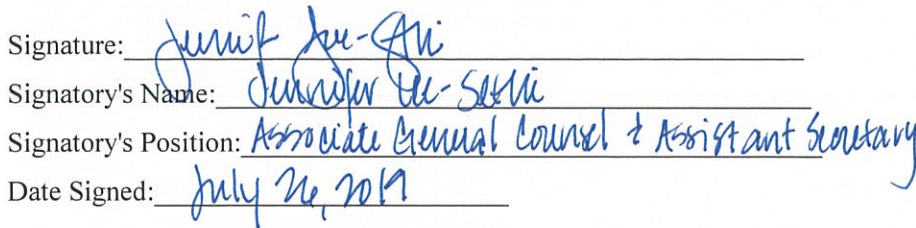 Signature: Jennif Lee-Sethi
Signatory's Name: Jennifer Lee-Sethi
Signatory's Position: Associate General Counsel & Assistant Secretary
Date Signed: July 26, 2019